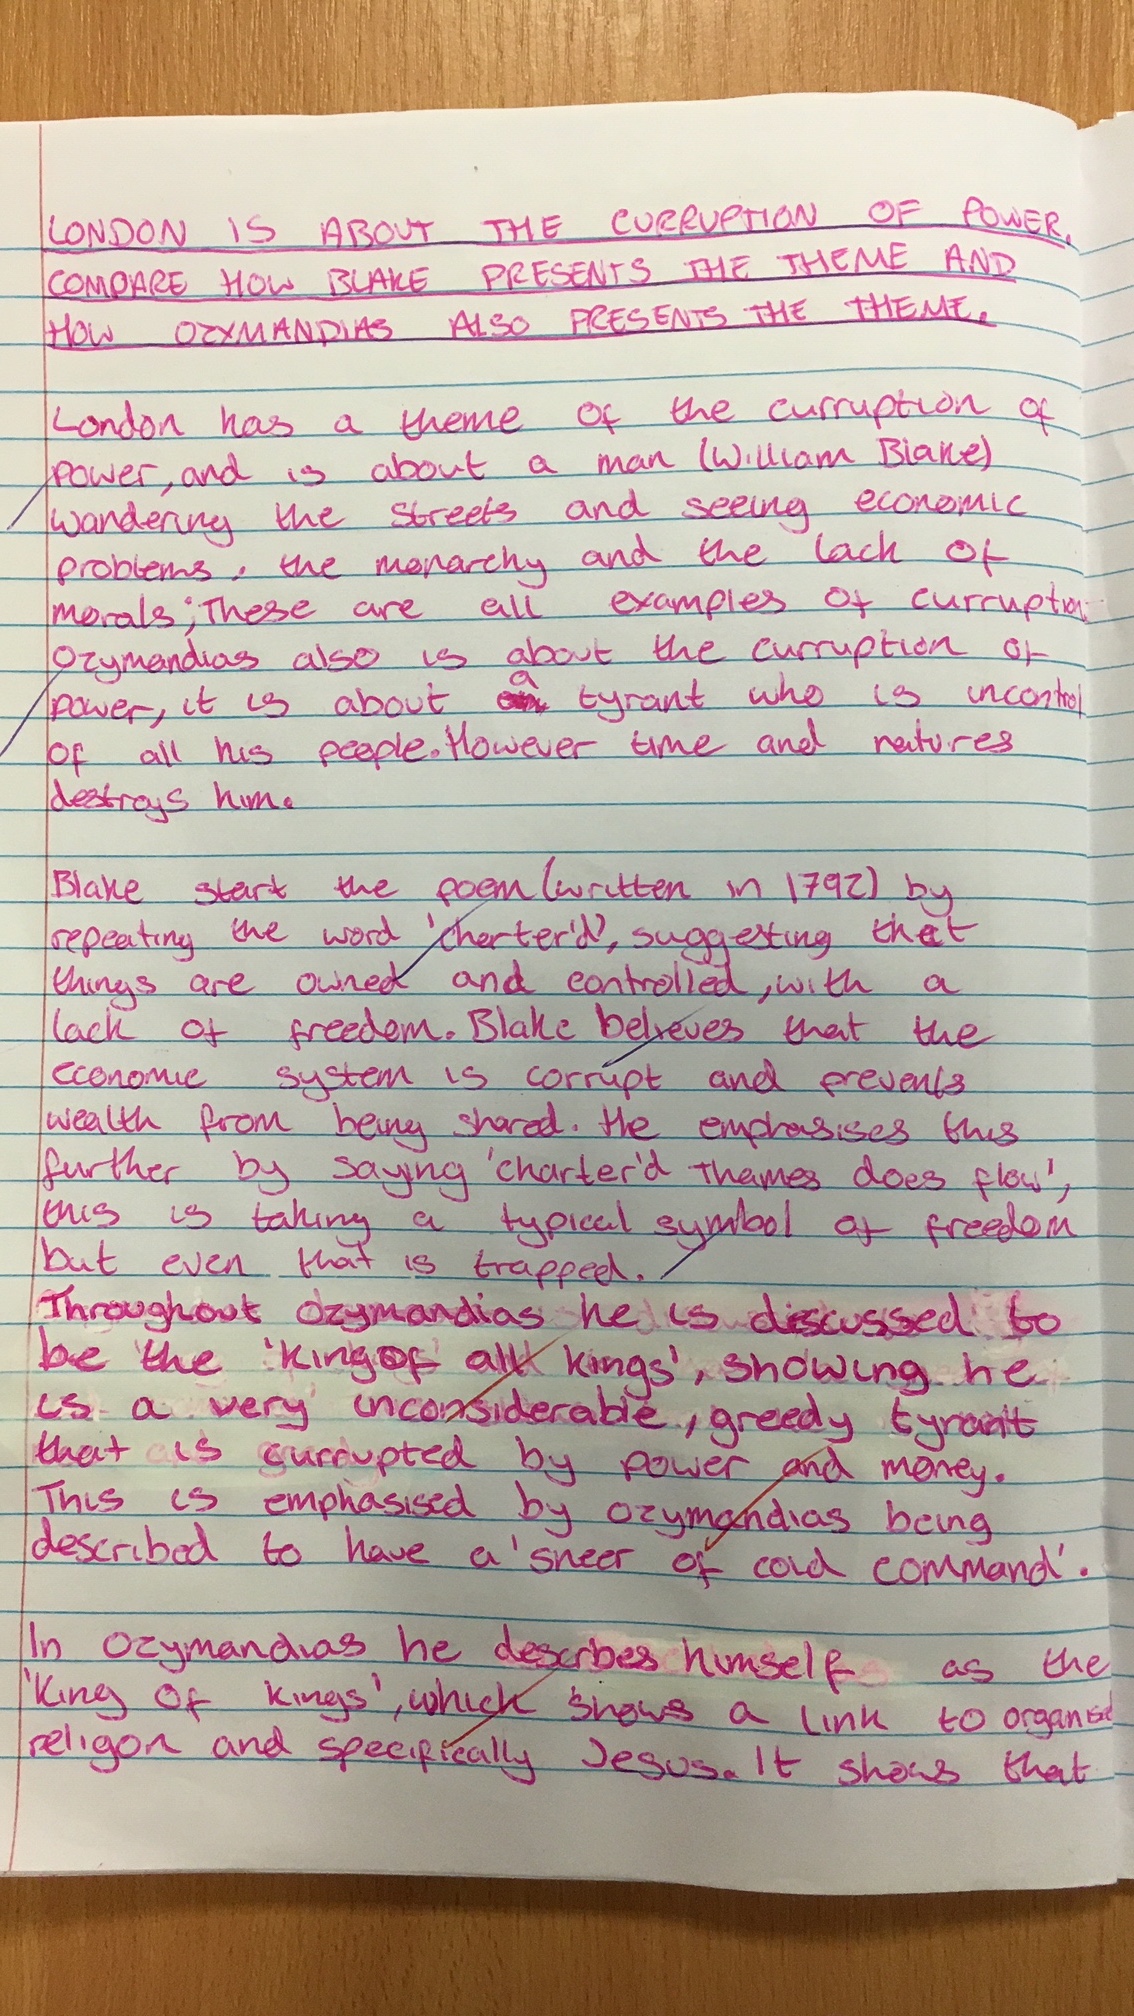 LONDON IS ABOUT THE CURRUPTION OF POWER.
COMPARE HOW BLAKE PRESENTS THE THEME AND
HOW OZYMANDIAS ALSO PRESENTS THE THEME.
London has a theme of the curruption of
power, and is about a man (William Blake)
wandering the streets and seeing economic
problems, the monarchy and the lack of
morals; These are all examples of curruption.
Ozymandias also is about the curruption of
power, it is about a tyrant who is incontrol
of all his people. However time and natures
destroys him.
Blake start the poem (written in 1792) by
repeating the word 'charter'd', suggesting that
things are owned and controlled, with a
lack of freedom. Blake believes that the
economic system is corrupt and prevents
wealth from being shared. He emphasises this
further by saying 'charter'd Thames does flow',
this is taking a typical symbol of freedom
but even that is trapped.
Throughout Ozymandias he is discussed to
be the 'King of all kings', showing he
is a very inconsiderable, greedy tyrant
that is currupted by power and money.
This is emphasised by ozymandias being
described to have a 'sneer of cold command'.
In Ozymandias he describes himself as the
'King of kings', which shows a link to organised
religon and specifically Jesus. It shows that